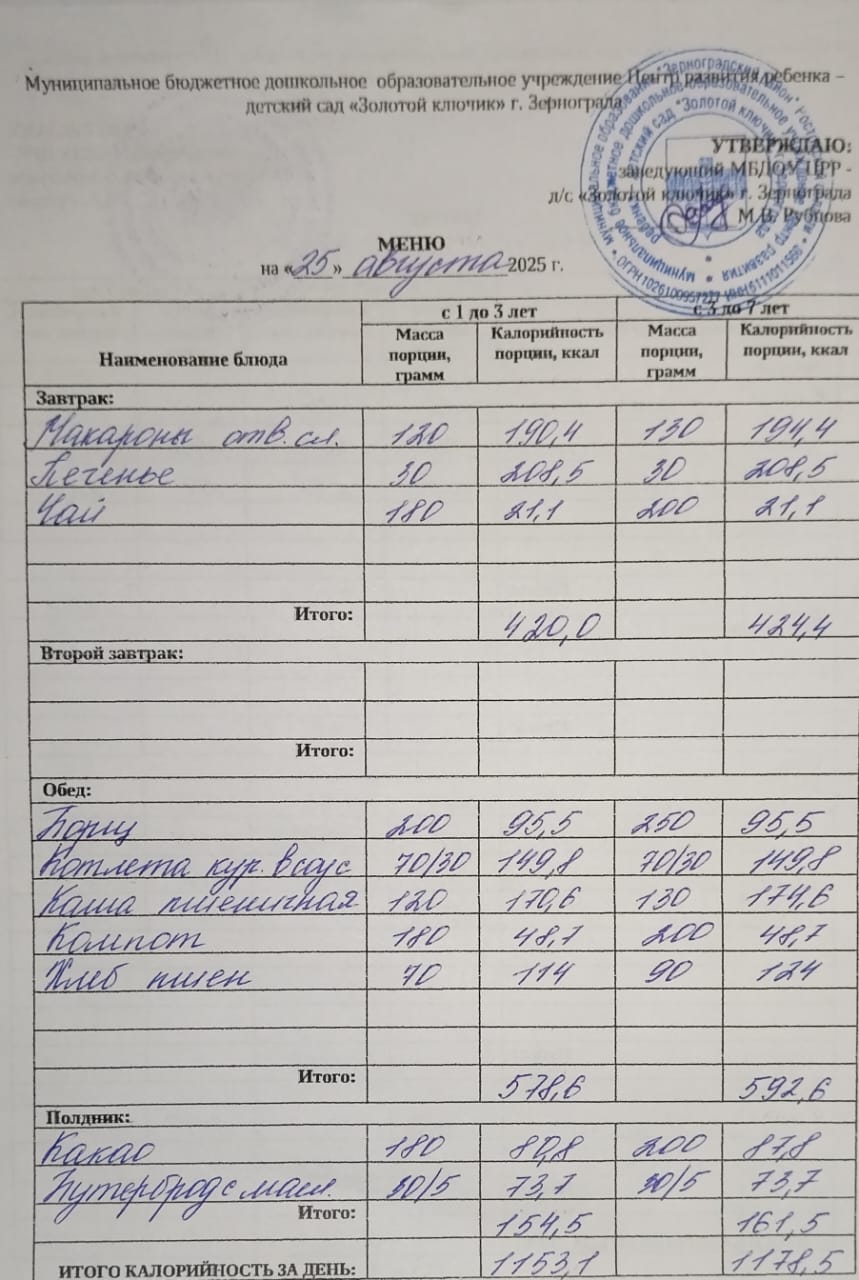 Муниципальное бюджетное дошкольное образовательное учреждение Центр развития ребенка –
детский сад «Золотой ключик» г. Зернограда
УТВЕРЖДАЮ:
заведующий МБДОУ ЦРР -
д/с «Золотой ключик» г. Зернограда
М.В. Рубцова
МЕНЮ
на «25» августа 2025 г.
Наименование блюда с 1 до 3 лет с 3 до 7 лет
Масса порции, грамм Калорийность порции, ккал Масса порции, грамм Калорийность порции, ккал
Завтрак:
Макароны отв. сл. 120 190,4 130 194,4
Печенье 30 208,5 30 208,5
Чай 180 21,1 200 21,1
Итого: 420,0 424,4
Второй завтрак:
Итого:
Обед:
Борщ 200 95,5 250 95,5
Котлета кур. в соус 70/30 149,8 70/30 149,8
Каша пшеничная 120 170,6 130 174,6
Компот 180 48,7 200 48,7
Хлеб пшен 70 114 90 124
Итого: 578,6 592,6
Полдник:
Какао 180 80,8 200 87,8
Бутерброд с масл. 30/5 73,7 30/5 73,7
Итого: 154,5 161,5
ИТОГО КАЛОРИЙНОСТЬ ЗА ДЕНЬ: 1153,1 1178,5